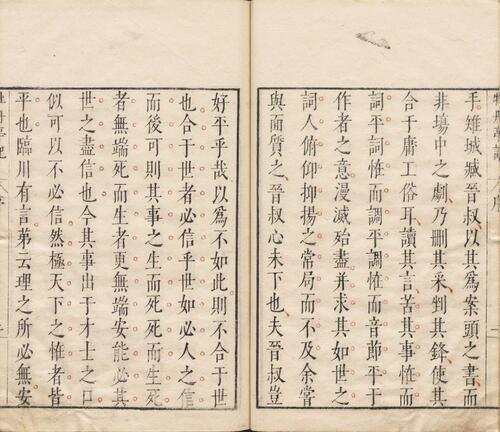 手雉城臧晉叔以其為案頭之書而
非場中之劇乃刪其采判其鋒使其
合于庸工俗耳讀其言苦其事恠而
詞平詞恠而調平調恠而音節平于
作者之意漫滅殆盡并求其如世之
詞人俯仰抑揚之常局而不及余嘗
與面質之晉叔心未下也夫晉叔豈
好平乎哉以為不如此則不合于世
也合于世者必信乎世如必人之信
而後可則其事之生而死死而生死
者無端死而生者更無端安能必其
世之盡信也今其事出于才士之口
似可以不必信然極天下之恠者皆
平也臨川有言第云理之所必無安